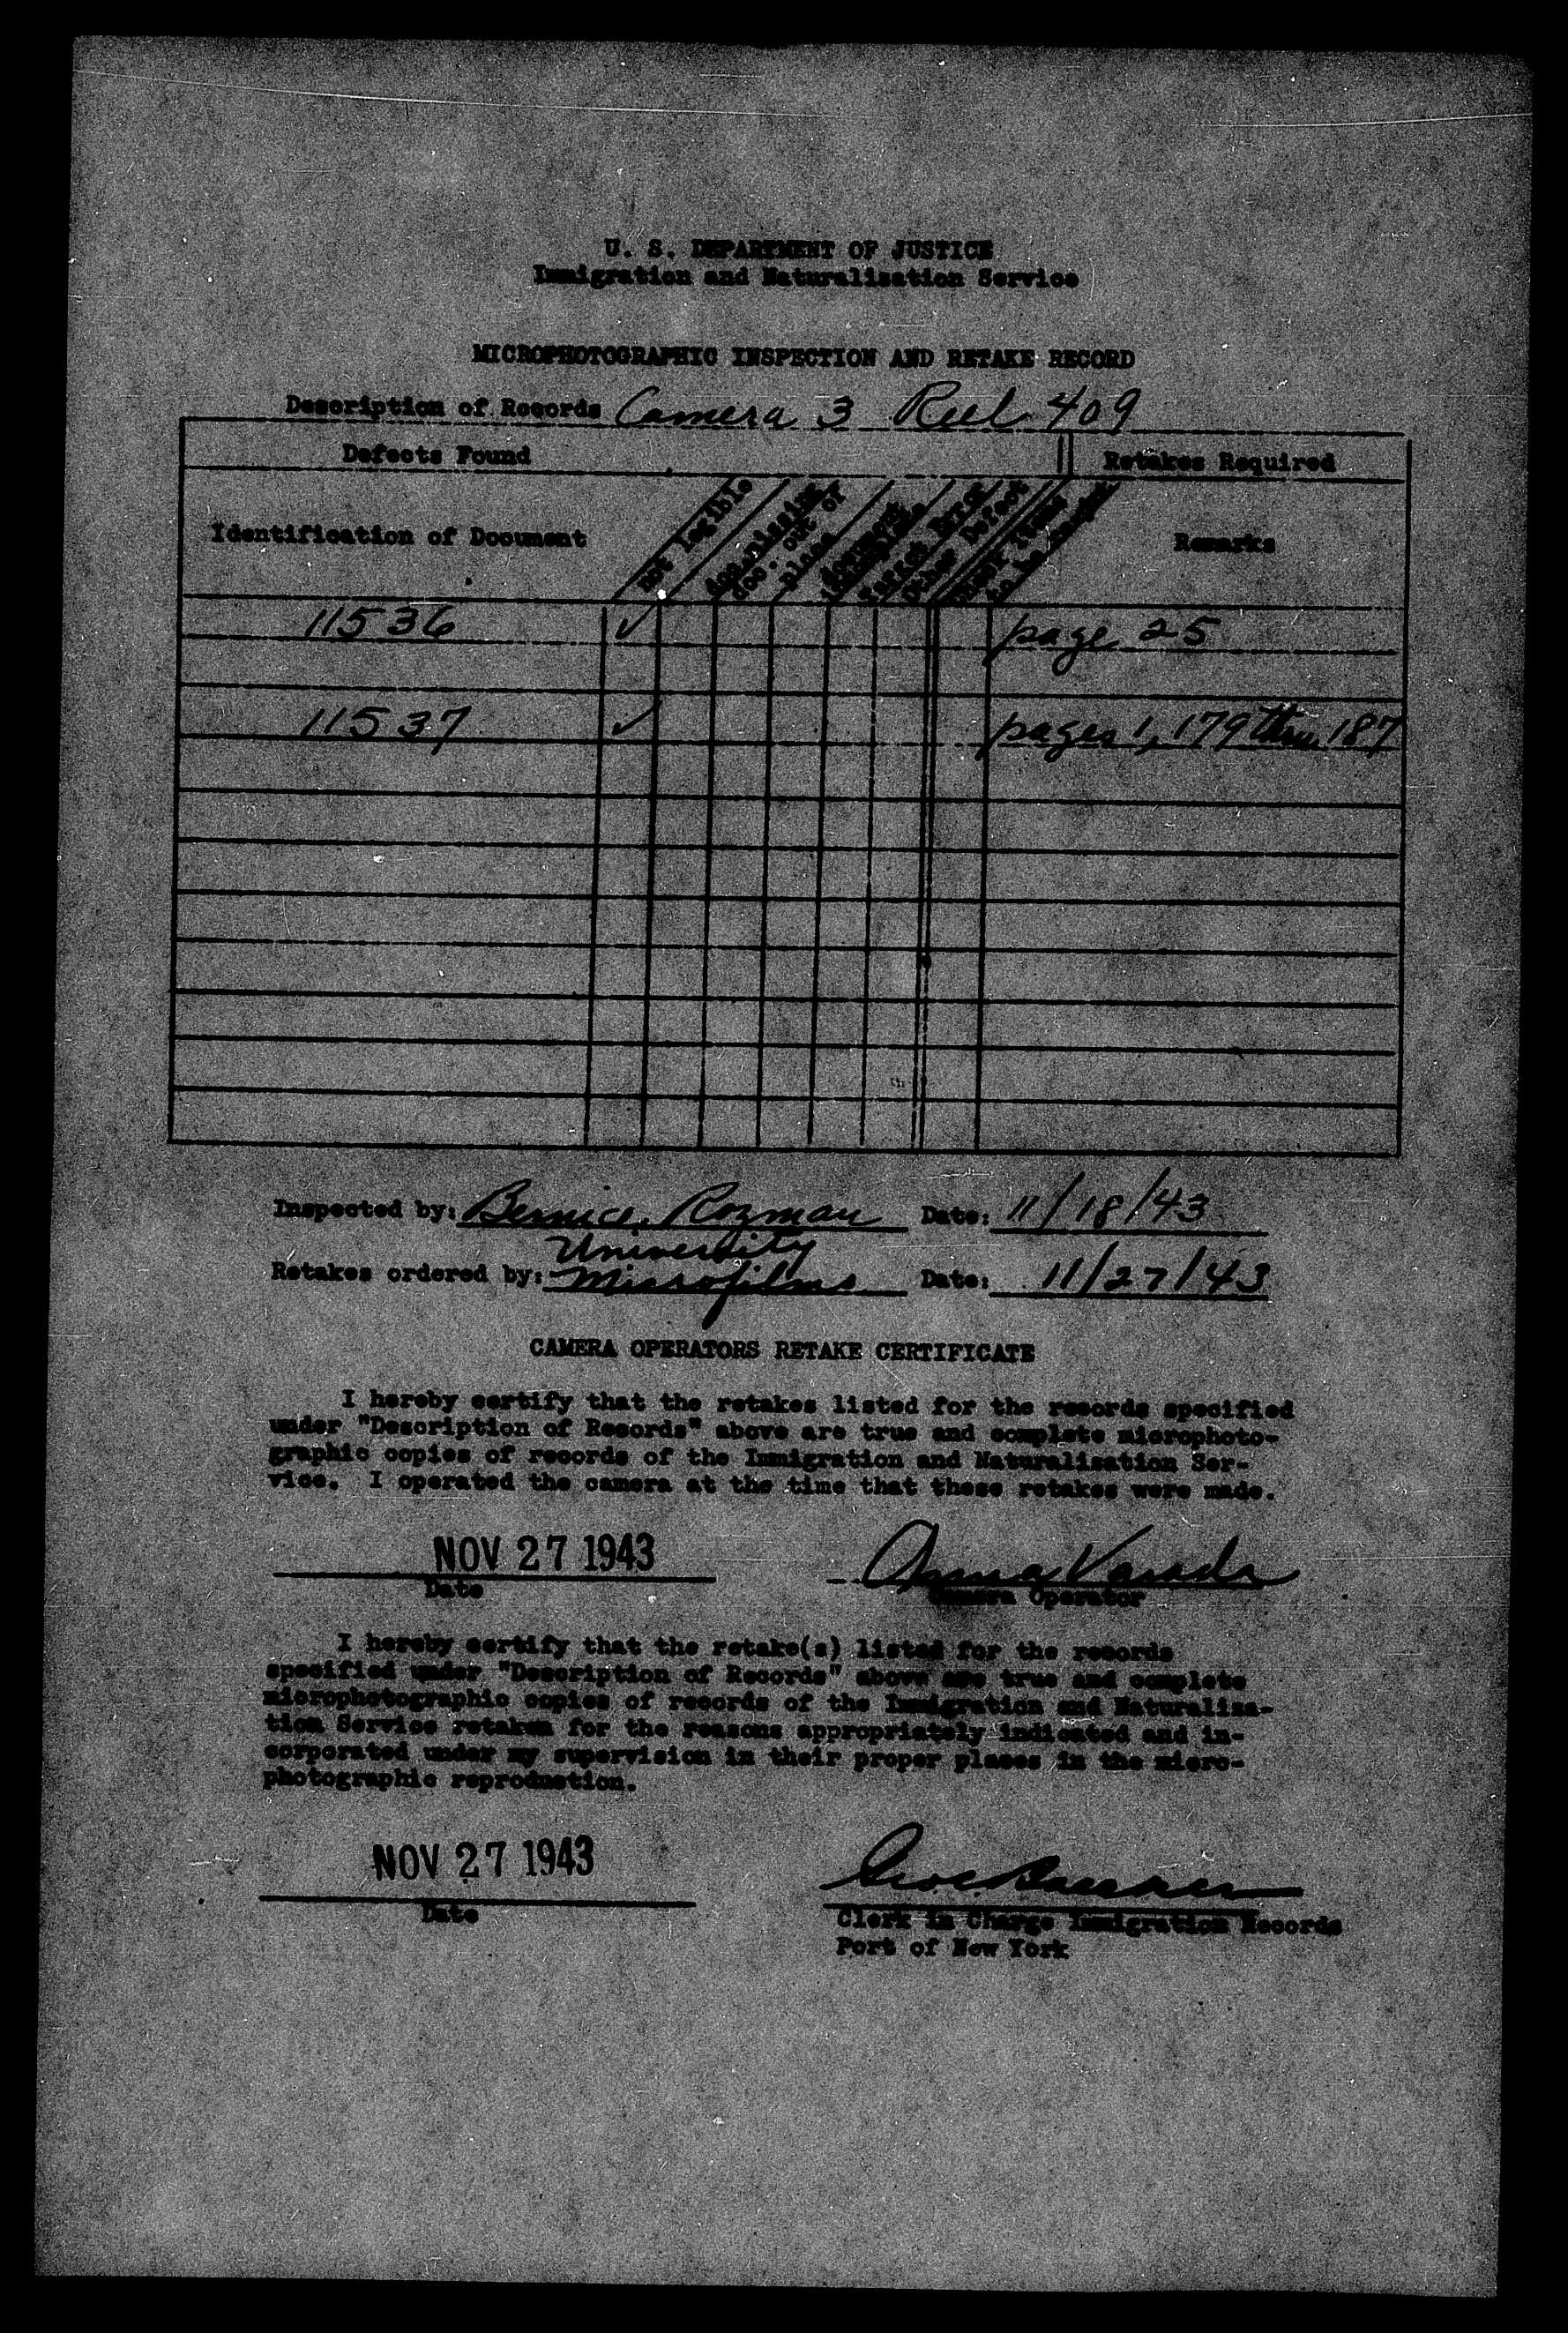 U. S. DEPARTMENT OF JUSTICE
Immigration and Naturalization Service
MICROPHOTOGRAPHIC INSPECTION AND RETAKE RECORD
Description of Records Camera 3 Reel 409
Defects Found
Retakes Required
Identification of Document
not legible
doc. missing
doc. out of place
Other Defect
Remarks
11536 ✓ page 25
11537 ✓ pages 1, 179 thru 187
Inspected by: Bernice Rozman Date: 11/18/43
University
Retakes ordered by: Microfilms Date: 11/27/43
CAMERA OPERATORS RETAKE CERTIFICATE
I hereby certify that the retakes listed for the records specified
under "Description of Records" above are true and complete microphoto-
graphic copies of records of the Immigration and Naturalization Ser-
vice. I operated the camera at the time that these retakes were made.
NOV 27 1943 Anna
Date
Camera Operator
I hereby certify that the retake(s) listed for the records
specified under "Description of Records" above are true and complete
microphotographic copies of records of the Immigration and Naturaliza-
tion Service retaken for the reasons appropriately indicated and in-
corporated under my supervision in their proper places in the micro-
photographic reproduction.
NOV 27 1943
Date
Clerk in Charge Immigration Records
Port of New York